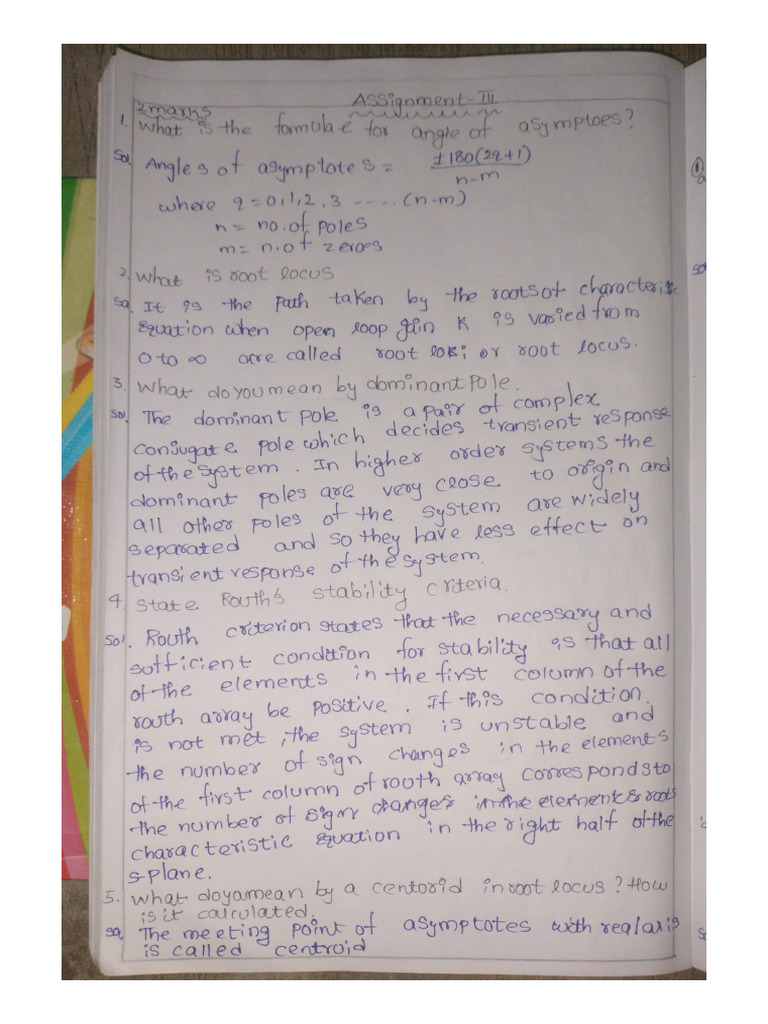 Assignment-III
2marks
1. What is the formulaé for angle of asymptoes?
Sol. Angles of asymptotes = ±180(2q+1)
n-m
where q = 0,1,2,3 ..... (n-m)
n = no.of poles
m = n.of zeroes
2. What is root locus
Sol. It is the path taken by the roots of characteristic
Equation when open loop gain K is varied from
0 to ∞ are called root loki or root locus.
3. What do you mean by dominant Pole.
Sol. The dominant pole is a pair of complex
conjugate pole which decides transient response
of the system. In higher order systems the
dominant poles are very close to origin and
all other poles of the system are widely
separated and so they have less effect on
transient response of the system.
4. State Routh's stability criteria.
Sol. Routh criterion states that the necessary and
sufficient condition for stability is that all
of the elements in the first column of the
routh array be positive. If this condition
is not met, the system is unstable and
the number of sign changes in the elements
of the first column of routh array corresponds to
the number of sign changes in the elements roots
characteristic Equation in the right half of the
s-plane.
5. What do ya mean by a centorid in root locus? How
is it calculated.
Sol. The meeting point of asymptotes with real axis
is called centroid